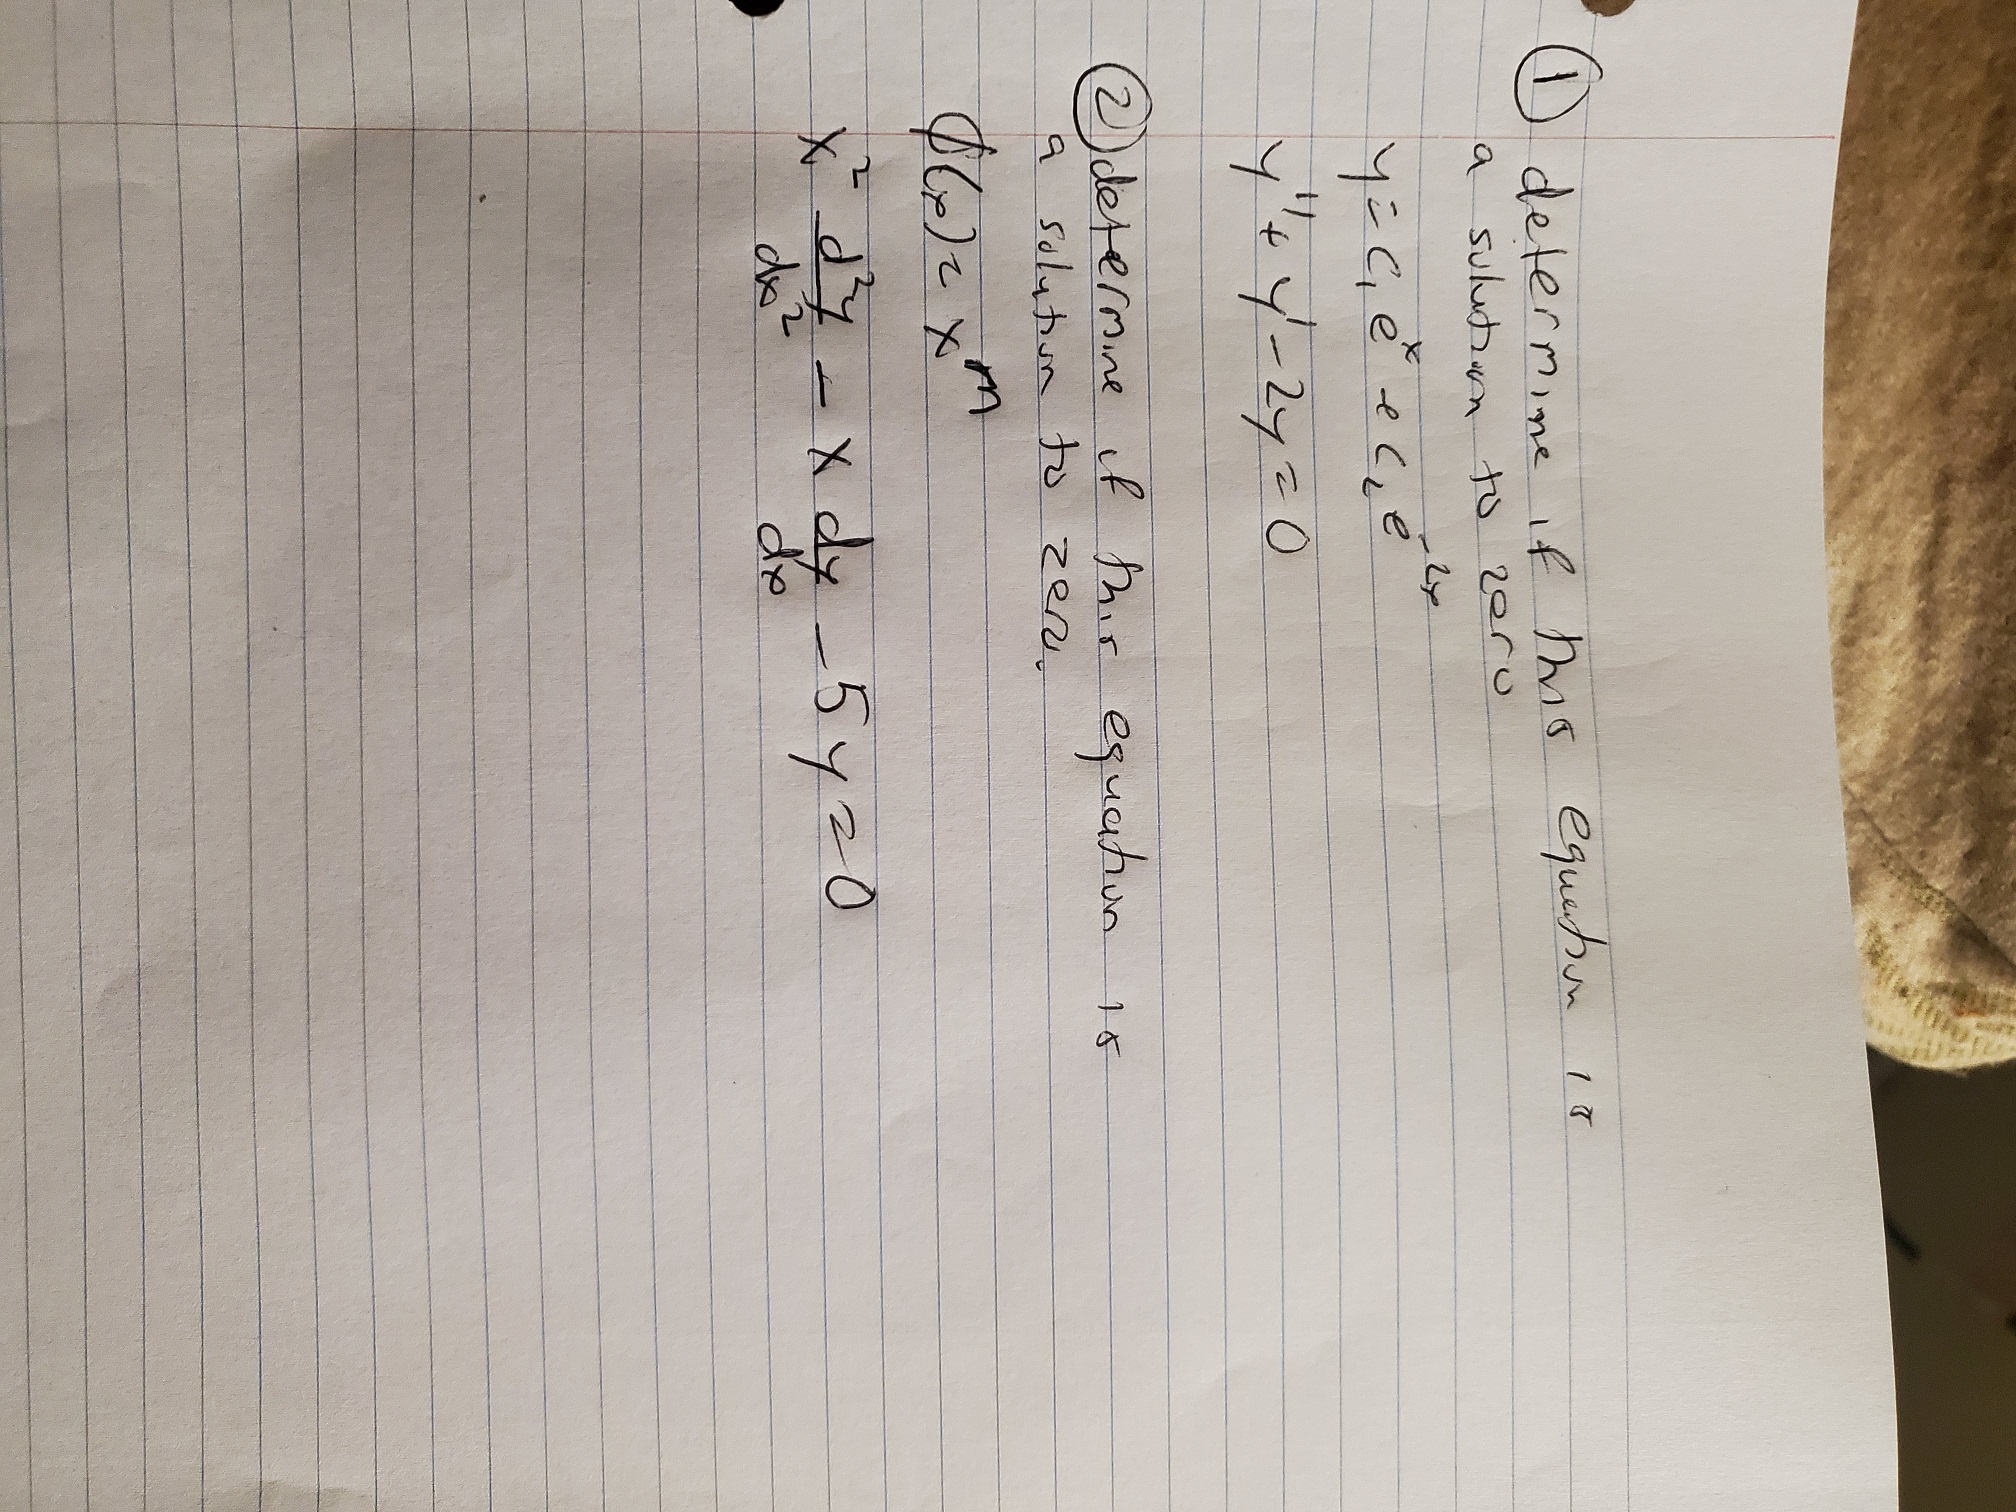 ① determine if this equation is
a solution to zero
y = C₁ eˣ + C₂ e⁻²ˣ
y'' + y' - 2y = 0
② determine if this equation is
a solution to zero.
ϕ(x) = xᵐ
x² d²y/dx² - x dy/dx - 5y = 0